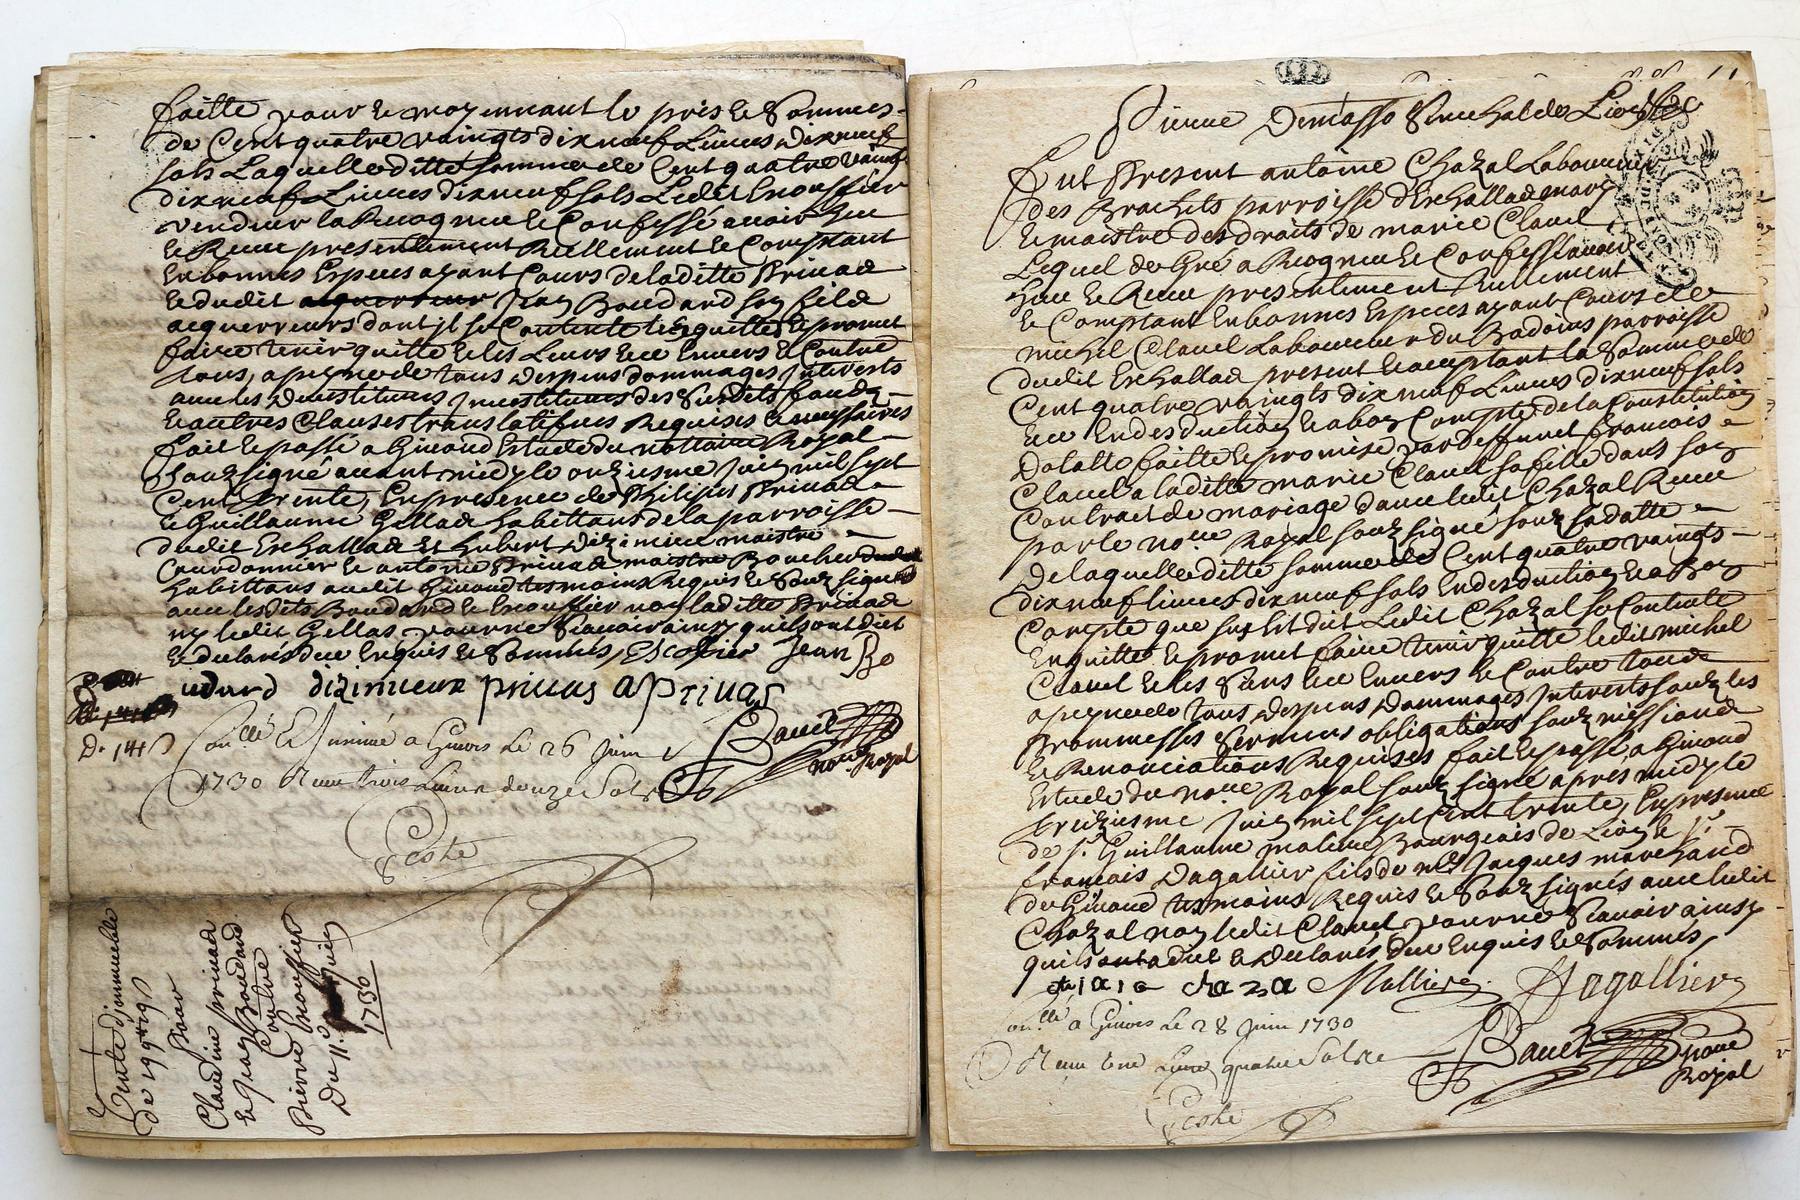 faitte pour et moyennant le pris et Sommes
de Cent quatre vaingts dix neuf Livres dix neuf
sols Laquelle ditte somme de Cent quatre vaingt
dix neuf Livres dix neuf sols Ledit Escouffier
vendeur la Recogneu et Confessé avoir heu
et Receu presentement Reellement et Comptant
En bonnes Especes ayant Cours de laditte Privade
et dudit Jean Boudard son fils
acquerreurs dont jl se Contente les quitte et promet
faire tenir quitte et les Leurs Envers et Contre
tous, a peyne de tous despens dommages Jnterests
avec les devestitures jnvestitures des Susdits fonds
et autres Clauses translatifves Requises et necessaires
fait et passé a Givord Estude du nottaire Royal
Soubzsigné avant midy le onziesme Juin mil sept
Cent trente, En presence de Philipes Privade
et Guillaume Gellade habittans de la parroisse
dudit Eschallad et hubert dizimieu maistre
Courdonnier et antoine Privad maistre Boucher
habittans audit Givord tesmoins Requis et Soubzsignés
avec lesdits Boudard et Escouffier non laditte Privade
ny ledit Gellas pour ne Scavoir ainsy quils ont dict
et declarés de ce Enquis et Sommés, Escoffier Jean Bo
udard dizimieux privas a Privas
D. 14 s
Con.llé Et Jnsinué a Givors Le 26 Juin
1730 Receu trois Livres douze Sols
Bauet
no.re Royal
Coste
Vente d'jmmeuble
de 199# 19s
Pour
Claudine privade
et Jean Boudard
Contre
Pierre Escouffier
Du 11e Juin
1730
Pierre Demasso Senechal de Lion
fut Present antoine Chazal Laboureur
des Brachets parroisse d'Eschallad mary
et maistre des droits de marie Clavel
Lequel de Gré a Recogneu et Confessé avoir
heu et Receu presentement Reellement
et Comptant En bonnes Especes ayant Cours de
michel Clavel Laboureur du Badoins parroisse
dudit Eschallad present et acceptant la Somme de
Cent quatre vaingts dix neuf Livres dix neuf sols
Et ce En desduction et a bon Compte de la Constitution
Dotalle faitte et promise par deffunct francois
Clavel a laditte marie Clavel sa fille dans son
Contract de mariage d'avec ledit Chazal Receu
par le no.re Royal soubzsigné soubz sa datte
de laquelle ditte somme de Cent quatre vaingts
dix neuf livres dix neuf sols En desduction et a Bon
Compte que sus Est dit Ledit Chazal se Contente
En quitte et promet faire tenir quitte ledit michel
Clavel et les Siens Envers et Contre tous
a peyne de tous despens dommages Jnterests soubz les
Prommesses Sermens obligations soubzmissions
et Renonciations Requises fait et passé a Givord
Estude du no.re Royal soubzsigné apres midy le
treiziesme Juin mil sept Cent trente, En presence
de s.r Guillaume Bourgeois de Lion et s.r
francois Dagallier fils de Jacques marchand
de Givord tesmoins Requis et Soubzsignés avec ledit
Chazal non ledit Clavel pour ne Scavoir ainsy
quils ont dict et declarés de ce Enquis et Sommés
Dagallier
Con.llé a Givors Le 28 Juin 1730
Receu une Livre quatre Sols
Bauet no.re
Royal
Coste